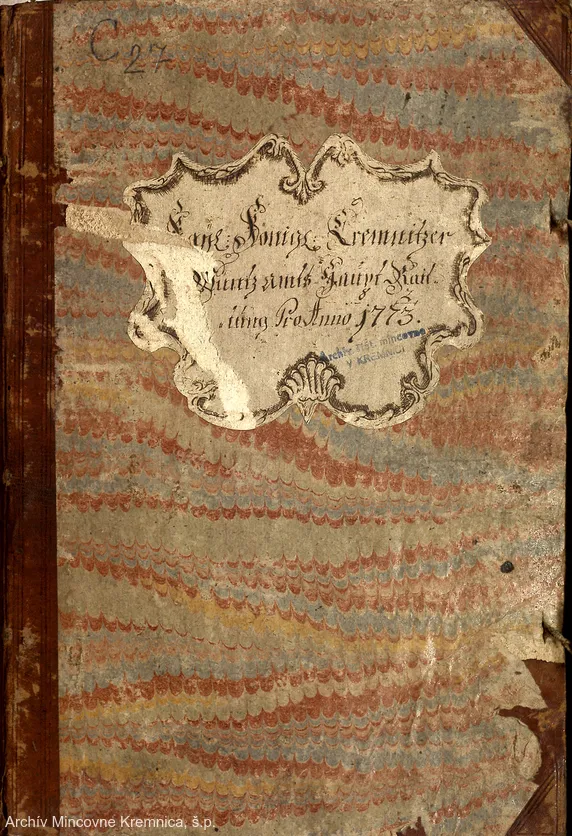 C
27
Kays: Königl: Cremnitzer
Müntz amts Haupt Rait-
-ung Pro Anno 1773.
Archív štát. mincovne
V KREMNICI
Archív Mincovne Kremnica, š.p.